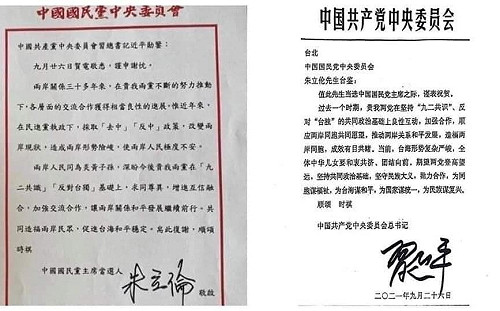 中國國民黨中央委員會
中國共產黨中央委員會習總書記近平勛鑒:
九月廿六日賀電敬悉,謹申謝忱。
兩岸關係三十多年來,在貴我兩黨不斷的努力推動
下,各層面的交流合作獲得相當良性的進展。惟近年來,
在民進黨執政下,採取「去中」「反中」政策,改變兩
岸現狀,造成兩岸形勢險峻,使兩岸人民極度不安。
兩岸人民同為炎黃子孫,深盼今後貴我兩黨在「九
二共識」「反對台獨」基礎上,求同尊異,增進互信融
合,加強交流合作,讓兩岸關係和平發展繼續前行。共
同造福兩岸民眾,促進台海和平穩定。耑此復謝,順頌
時祺
中國國民黨主席當選人 朱立倫 敬啟
中国共产党中央委员会
台北
中国国民党中央委员会
朱立伦先生台鉴:
值此先生当选中国国民党主席之际,谨表祝贺。
过去一个时期,贵我两党在坚持“九二共识”、反
对“台独”的共同政治基础上良性互动,加强合作,顺
应两岸同胞共同愿望,推动两岸关系和平发展,造福两岸同
胞,成效有目共睹。当前,台海形势复杂严峻,全
体中华儿女要和衷共济、团结向前,期望两党登高望
远,坚持共同政治基础,坚守民族大义,勠力合作,为同
胞谋福祉,为台海谋和平,为国家谋统一,为民族谋复兴。
顺颂 时祺
中国共产党中央委员会总书记
习近平
二〇二一年九月二十六日